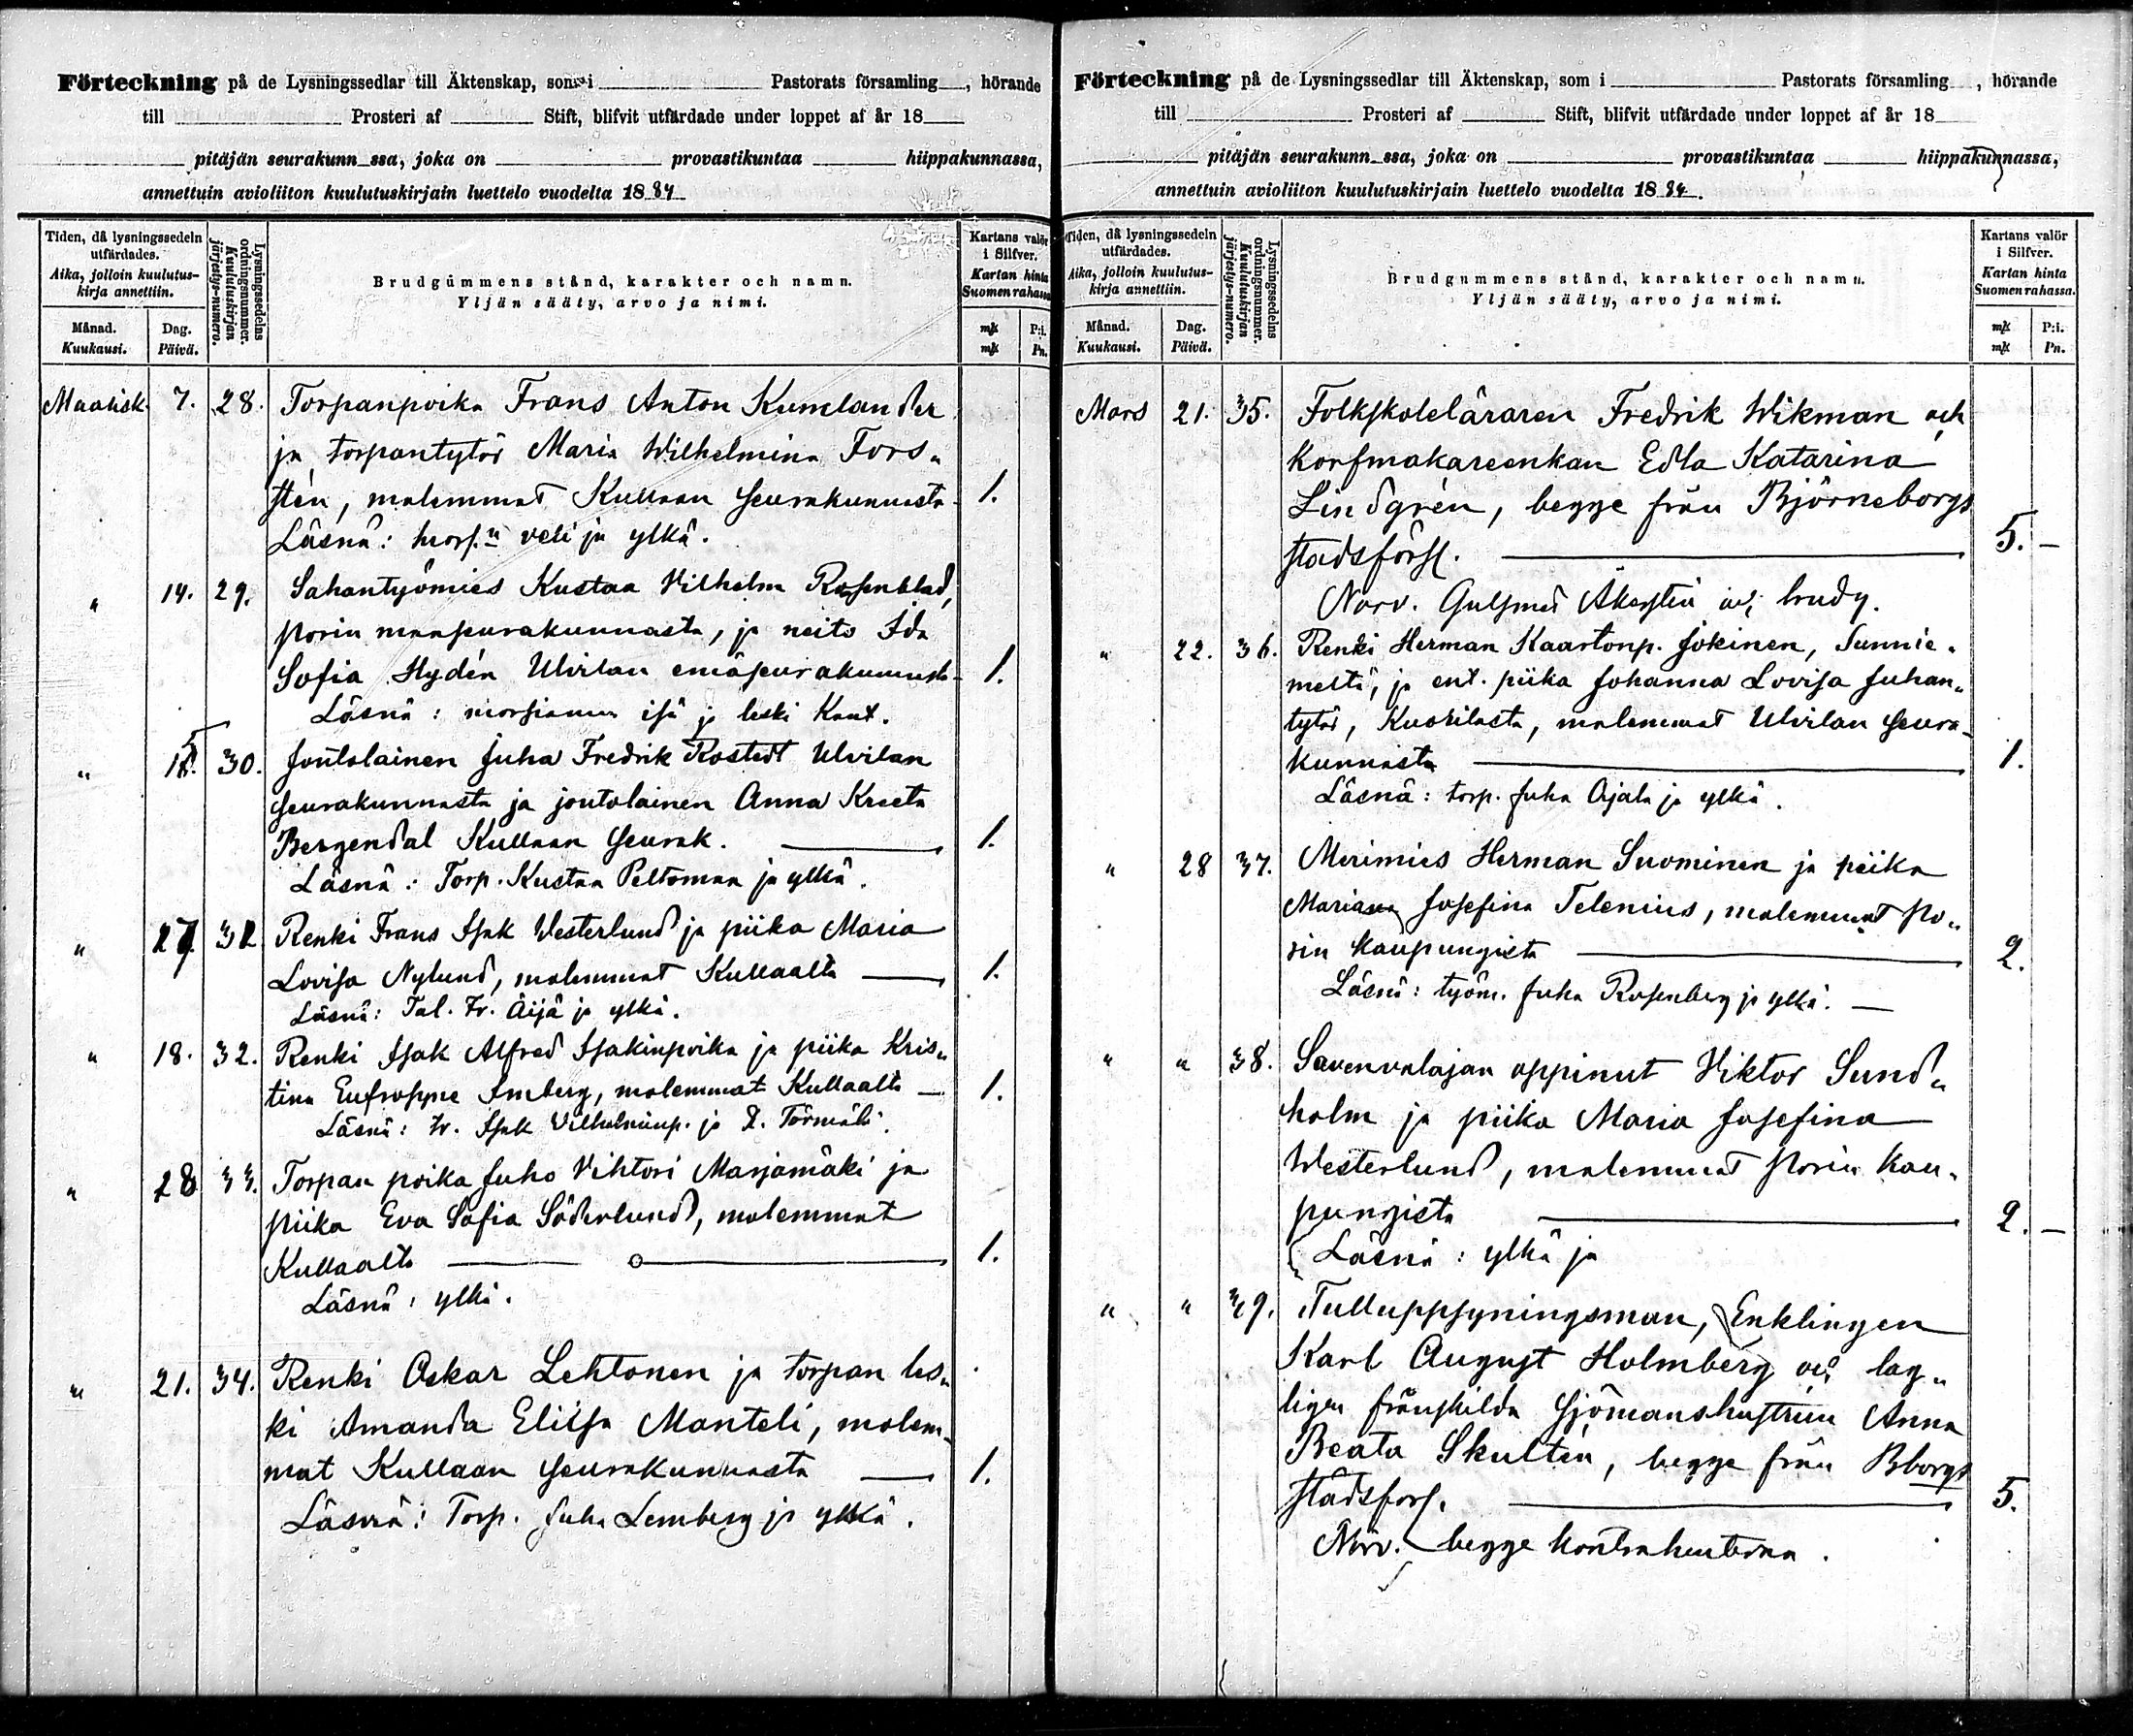 Förteckning på de Lysningssedlar till Äktenskap, som i Pastorats församling, hörande
till Prosteri af Stift, blifvit utfärdade under loppet af år 18
pitäjän seurakunn ssa, joka on provastikuntaa hiippakunnassa,
annettuin avioliiton kuulutuskirjain luettelo vuodelta 1884
Tiden, då lysningssedeln utfärdades.
Aika, jolloin kuulutus-kirja annettiin.
Månad. Kuukausi.
Dag. Päivä.
Lysningssedelns ordningsnummer.
Kuulutuskirjan järjestys-numero.
Brudgummens stånd, karakter och namn.
Yljän sääty, arvo ja nimi.
Kartans valör i Silfver.
Kartan hinta Suomen rahassa.
mk P:i.
mk Pn.
Maalisk. 7. 28. Torpanpoika Frans Anton Kumlander
ja torpantytär Maria Wilhelmina Fors„
stén, molemmat Kullaan seurakunnasta 1.
Läsnä: mors:n veli ja ylkä.
„ 14. 29. Sahantyömies Kustaa Vilhelm Rosenblad,
Porin maaseurakunnasta, ja neito Ida
Sofia Hydén Ulvilan emäseurakunnasta 1.
Läsnä: morsiamen isä ja leski Kant.
„ 15. 30. Joutolainen Juha Fredrik Rostedt Ulvilan
seurakunnasta ja joutolainen Anna Kreeta
Bergendal Kullaan seurak. 1.
Läsnä: Torp. Kustaa Peltomaa ja ylkä.
„ 17. 31. Renki Frans Isak Westerlund ja piika Maria
Lovisa Nylund, molemmat Kullaalta 1.
Läsnä: Tal. Fr. Äijä ja ylkä.
„ 18. 32. Renki Isak Alfred Isakinpoika ja piika Kris„
tina Eufrosyne Imberg, molemmat Kullaalta 1.
Läsnä: Fr. Isak Vilhelminp. ja Törmälä.
„ 28 33. Torpan poika Juho Vihtori Marjamäki ja
piika Eva Sofia Söderlund, molemmat
Kullaalta 1.
Läsnä: ylkä.
„ 21. 34. Renki Oskar Lehtonen ja torpan les„
ki Amanda Eliisa Manteli, molem„
mat Kullaan seurakunnasta 1.
Läsnä: Torp. Juha Lemberg ja ylkä.
Förteckning på de Lysningssedlar till Äktenskap, som i Pastorats församling, hörande
till Prosteri af Stift, blifvit utfärdade under loppet af år 18
pitäjän seurakunn ssa, joka on provastikuntaa hiippakunnassa,
annettuin avioliiton kuulutuskirjain luettelo vuodelta 1884.
Tiden, då lysningssedeln utfärdades.
Aika, jolloin kuulutus-kirja annettiin.
Månad. Kuukausi.
Dag. Päivä.
Lysningssedelns ordningsnummer.
Kuulutuskirjan järjestys-numero.
Brudgummens stånd, karakter och namn.
Yljän sääty, arvo ja nimi.
Kartans valör i Silfver.
Kartan hinta Suomen rahassa.
mk P:i.
mk Pn.
Mars 21. 35. Folkskoleläraren Fredrik Wikman och
korfmakareenkan Edla Katarina
Lindgrén, begge från Björneborgs
stadsförsl. 5. –
Närv. Gulsmed Åkerstén och brudg.
„ 22. 36. Renki Herman Kaarlonp. Jokinen, Sunnie„
meltä, ja ent. piika Johanna Lovisa Juhan„
tytär, Kuorilasta, molemmat Ulvilan seura„
kunnasta 1.
Läsnä: torp. Juha Ajala ja ylkä.
„ 28 37. Merimies Herman Suominen ja piika
Maria Josefina Telenius, molemmat Po„
rin kaupungista 2.
Läsnä: työm. Juha Rosenberg ja ylkä. –
„ „ 38. Savenvalajan oppinut Viktor Sund„
holm ja piika Maria Josefina
Westerlund, molemmat Porin kau„
pungista 2. –
Läsnä: ylkä ja
„ „ 39. Tulluppsyningsman, Enklingen
Karl August Holmberg och lag„
ligen frånskilda sjömanshustrun Anna
Beata Skultén, begge från Bborgs
stadsförs. 5.
Närv. begge kontrahenterna.